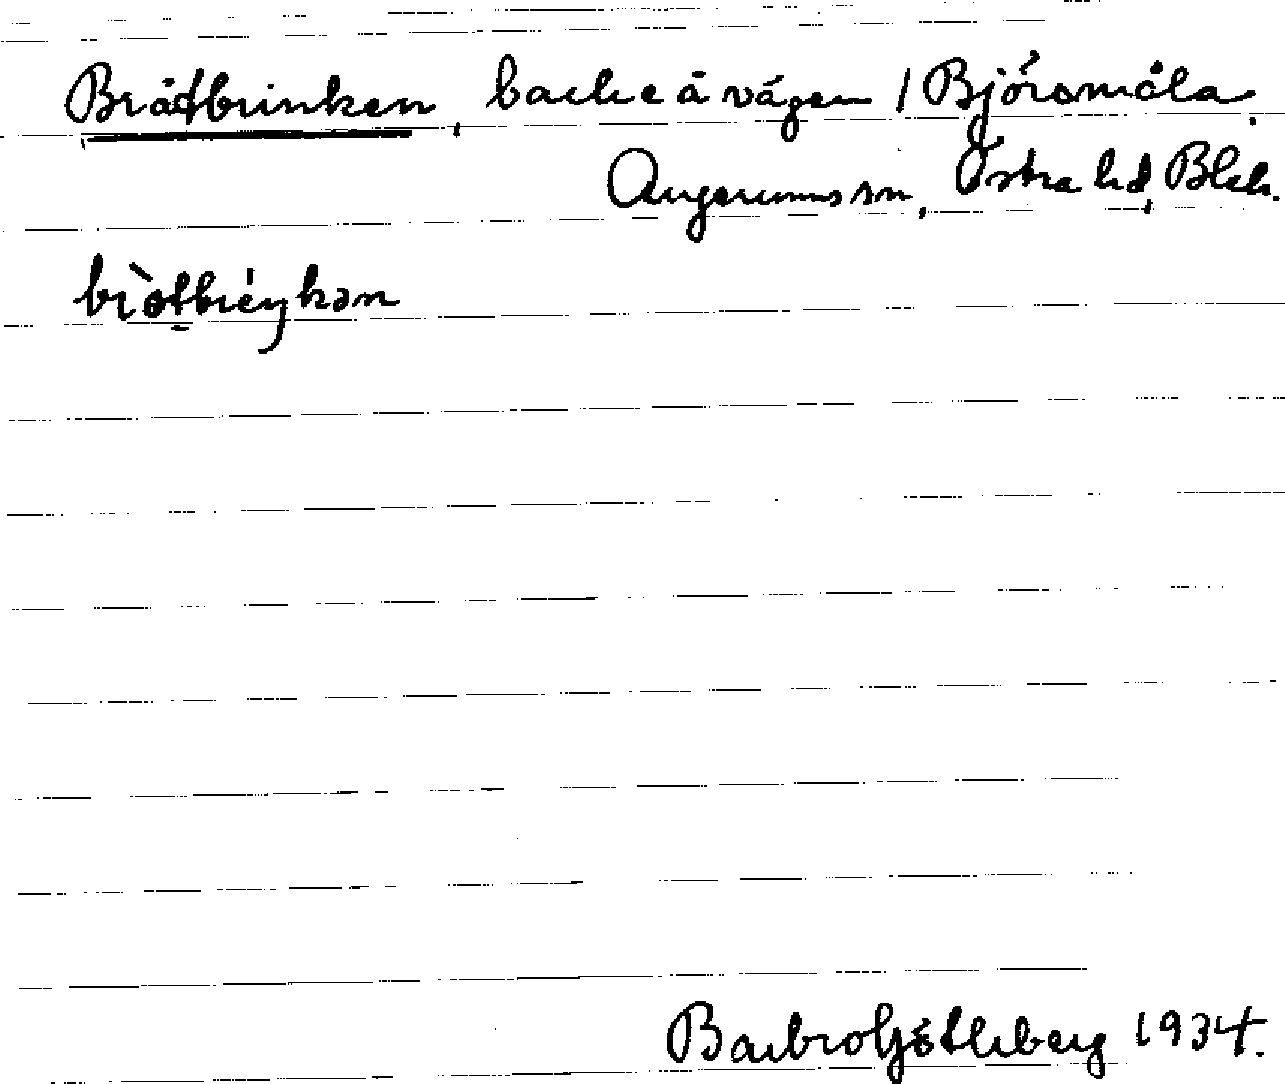 Bråtbrinken, backe å vägen / Björsmåla.
Augerums sn, Östra hd, Blek.
brò̱tbréŋkən
Barbro Götheberg 1934.